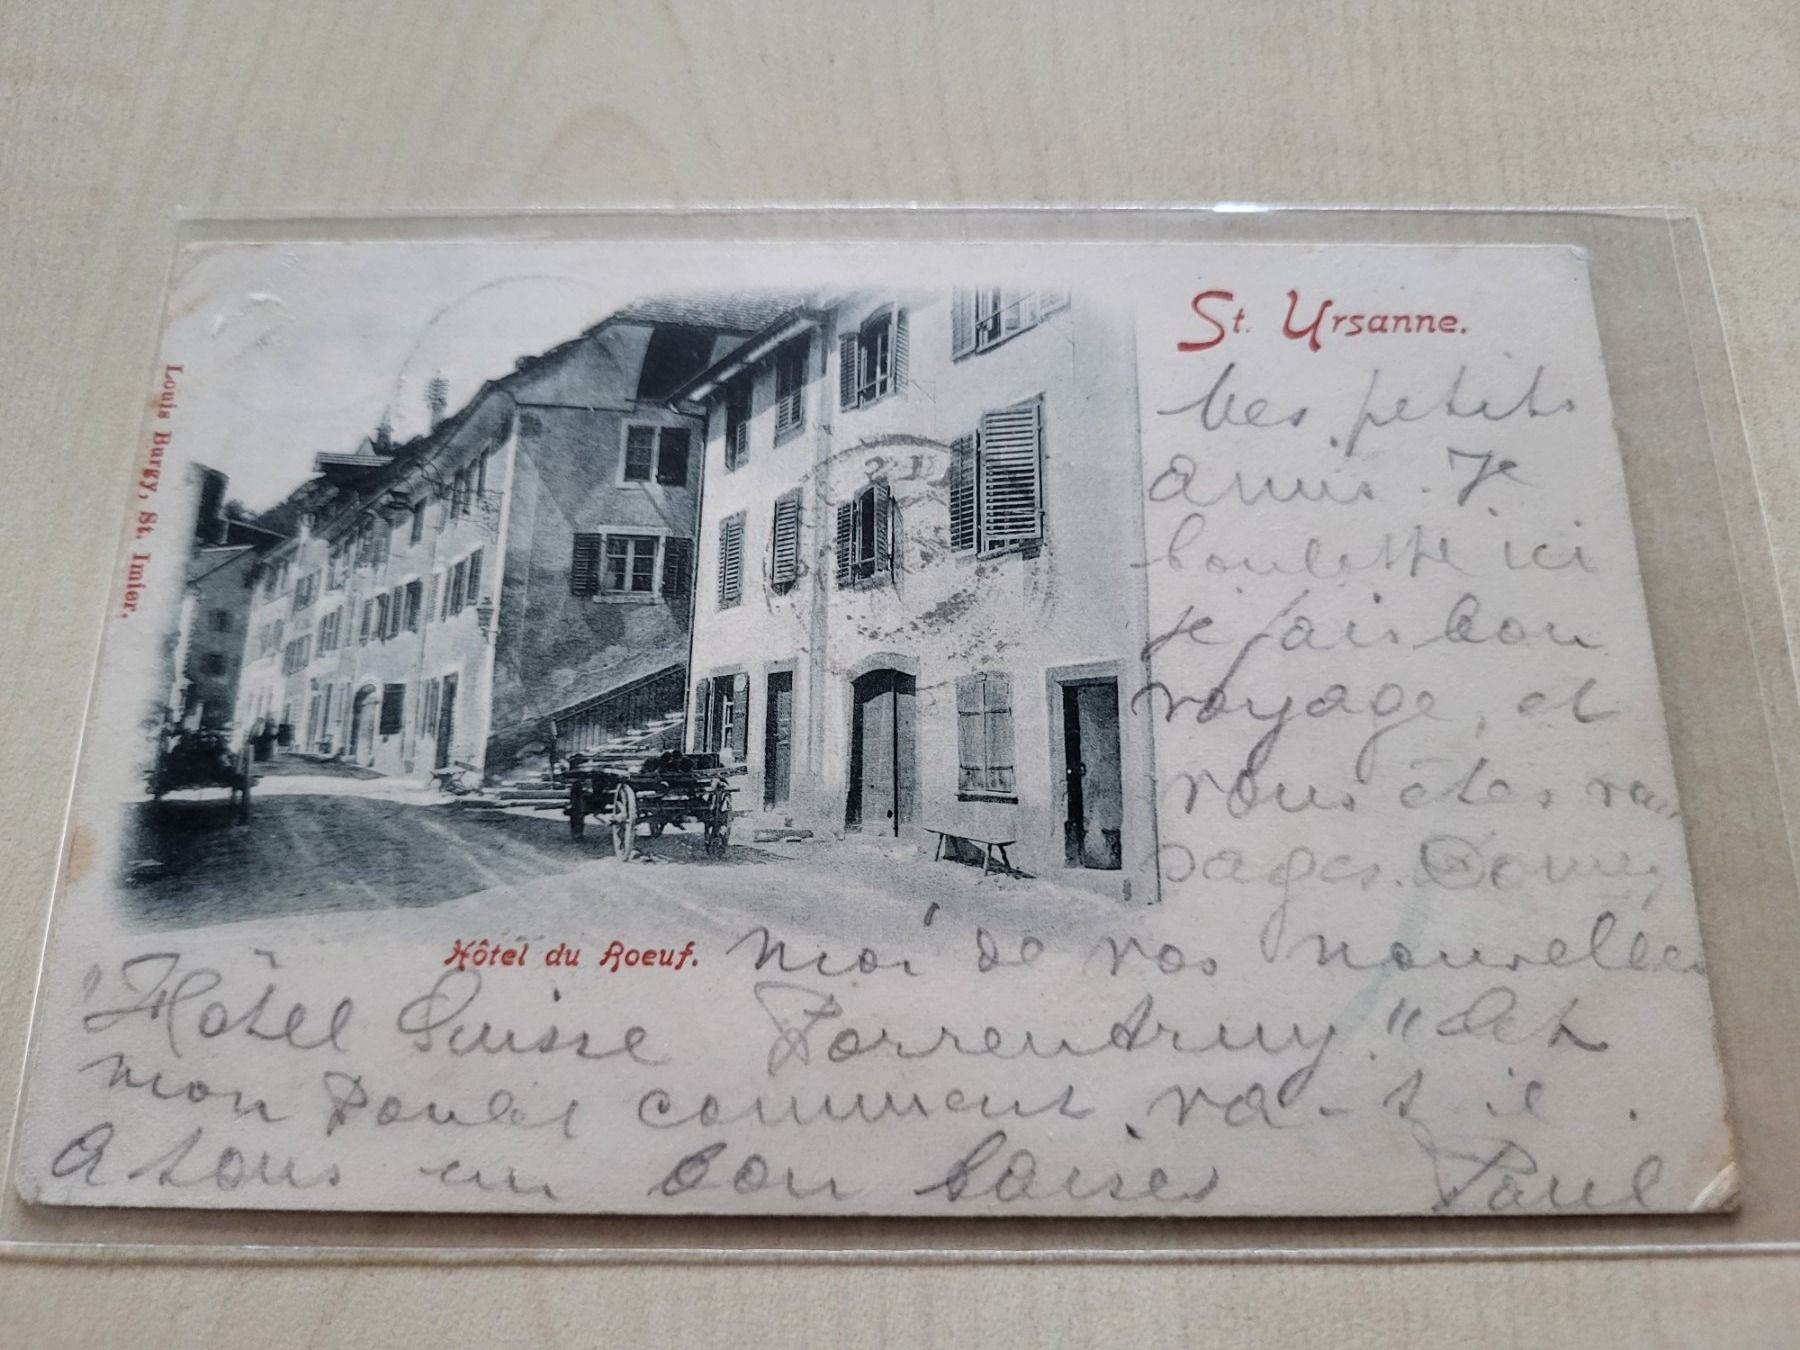 St. Ursanne.
Mes petits
amis. Je
boulotte ici
je fais bon
voyage, et
vous êtes vous
sages. Donnez
Hôtel du Boeuf.
moi de vos nouvelles
"Hôtel Suisse Porrentruy" Et
mon comment va-t-il.
A tous un bon baiser Paul
Louis Burgy, St. Imier.